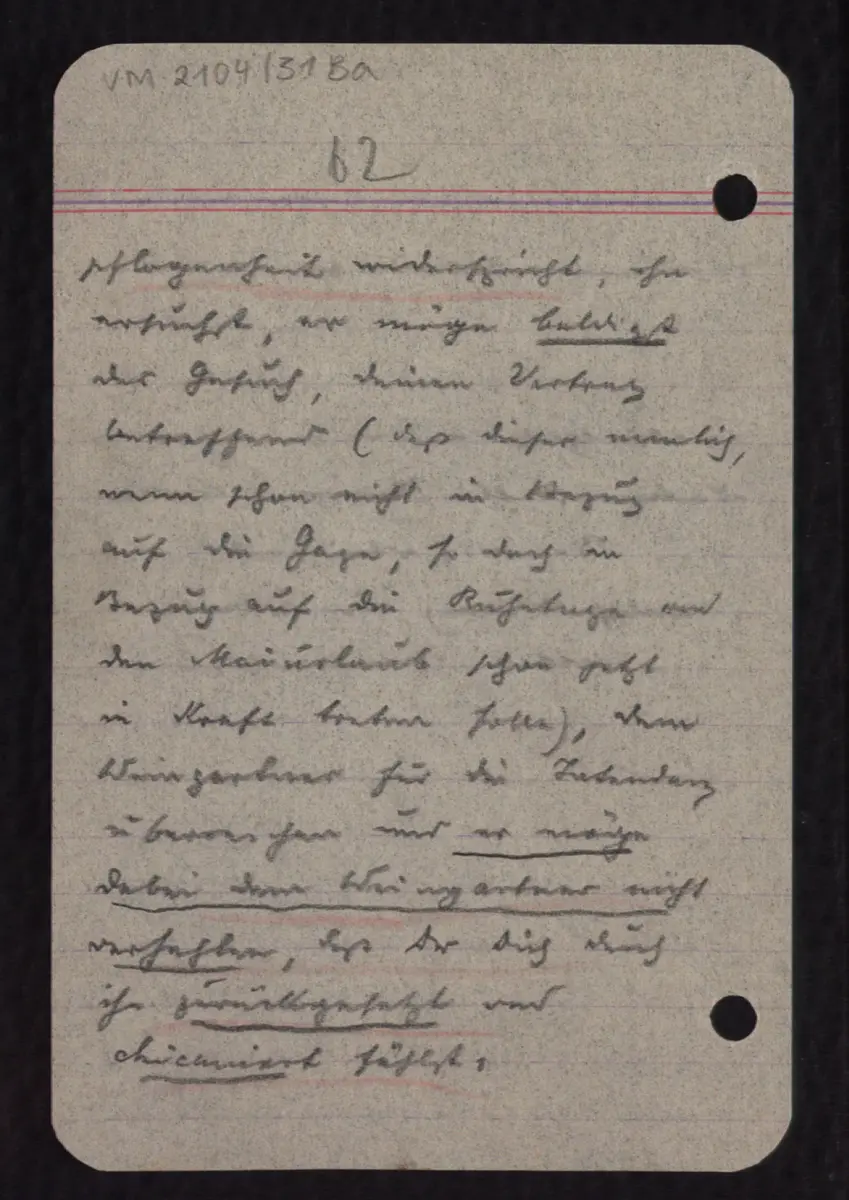 VM 2104/31 Ba
62
pflogenheit widerspricht, ihn
ersuchst, er möge baldigst
das Gesuch, deinen Vertrag
betreffend (daß dieser nemlich,
wenn schon nicht in Bezug
auf die Gage, so doch in
Bezug auf die Ruhetage und
den Maiurlaub schon jetzt
in Kraft treten solle), dem
Weingartner für die Intendanz
überreichen und er möge
dabei dem Weingartner nicht
verhehlen, daß Du Dich durch
ihn zurückgesetzt und
chicaniert fühlst,